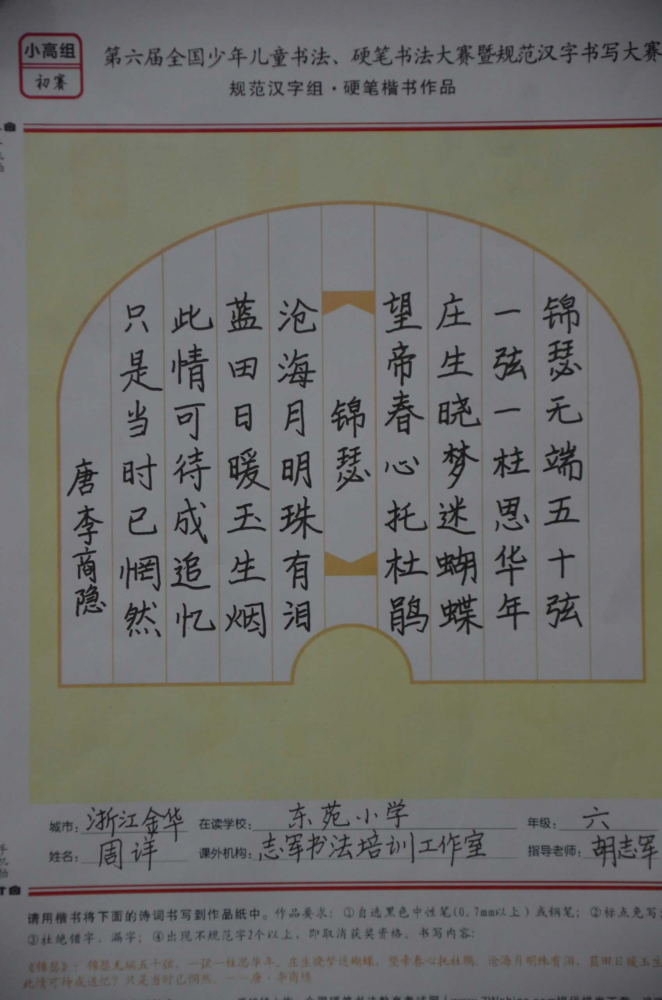 小高组
初赛
第六届全国少年儿童书法、硬笔书法大赛暨规范汉字书写大赛
规范汉字组·硬笔楷书作品
锦瑟无端五十弦
一弦一柱思华年
庄生晓梦迷蝴蝶
望帝春心托杜鹃
锦瑟
沧海月明珠有泪
蓝田日暖玉生烟
此情可待成追忆
只是当时已惘然
唐李商隐
城市：浙江金华 在读学校：东苑小学 年级：六
姓名：周详 课外机构：志军书法培训工作室 指导老师：胡志军
请用楷书将下面的诗词书写到作品纸中。作品要求：①自选黑色中性笔(0.7mm以上)或钢笔；②标点免写；
③杜绝错字、漏字；④出现不规范字2个以上，即取消获奖资格。书写内容：
《锦瑟》：锦瑟无端五十弦，一弦一柱思华年。庄生晓梦迷蝴蝶，望帝春心托杜鹃。沧海月明珠有泪，蓝田日暖玉生
此情可待成追忆？只是当时已惘然。——唐·李商隐